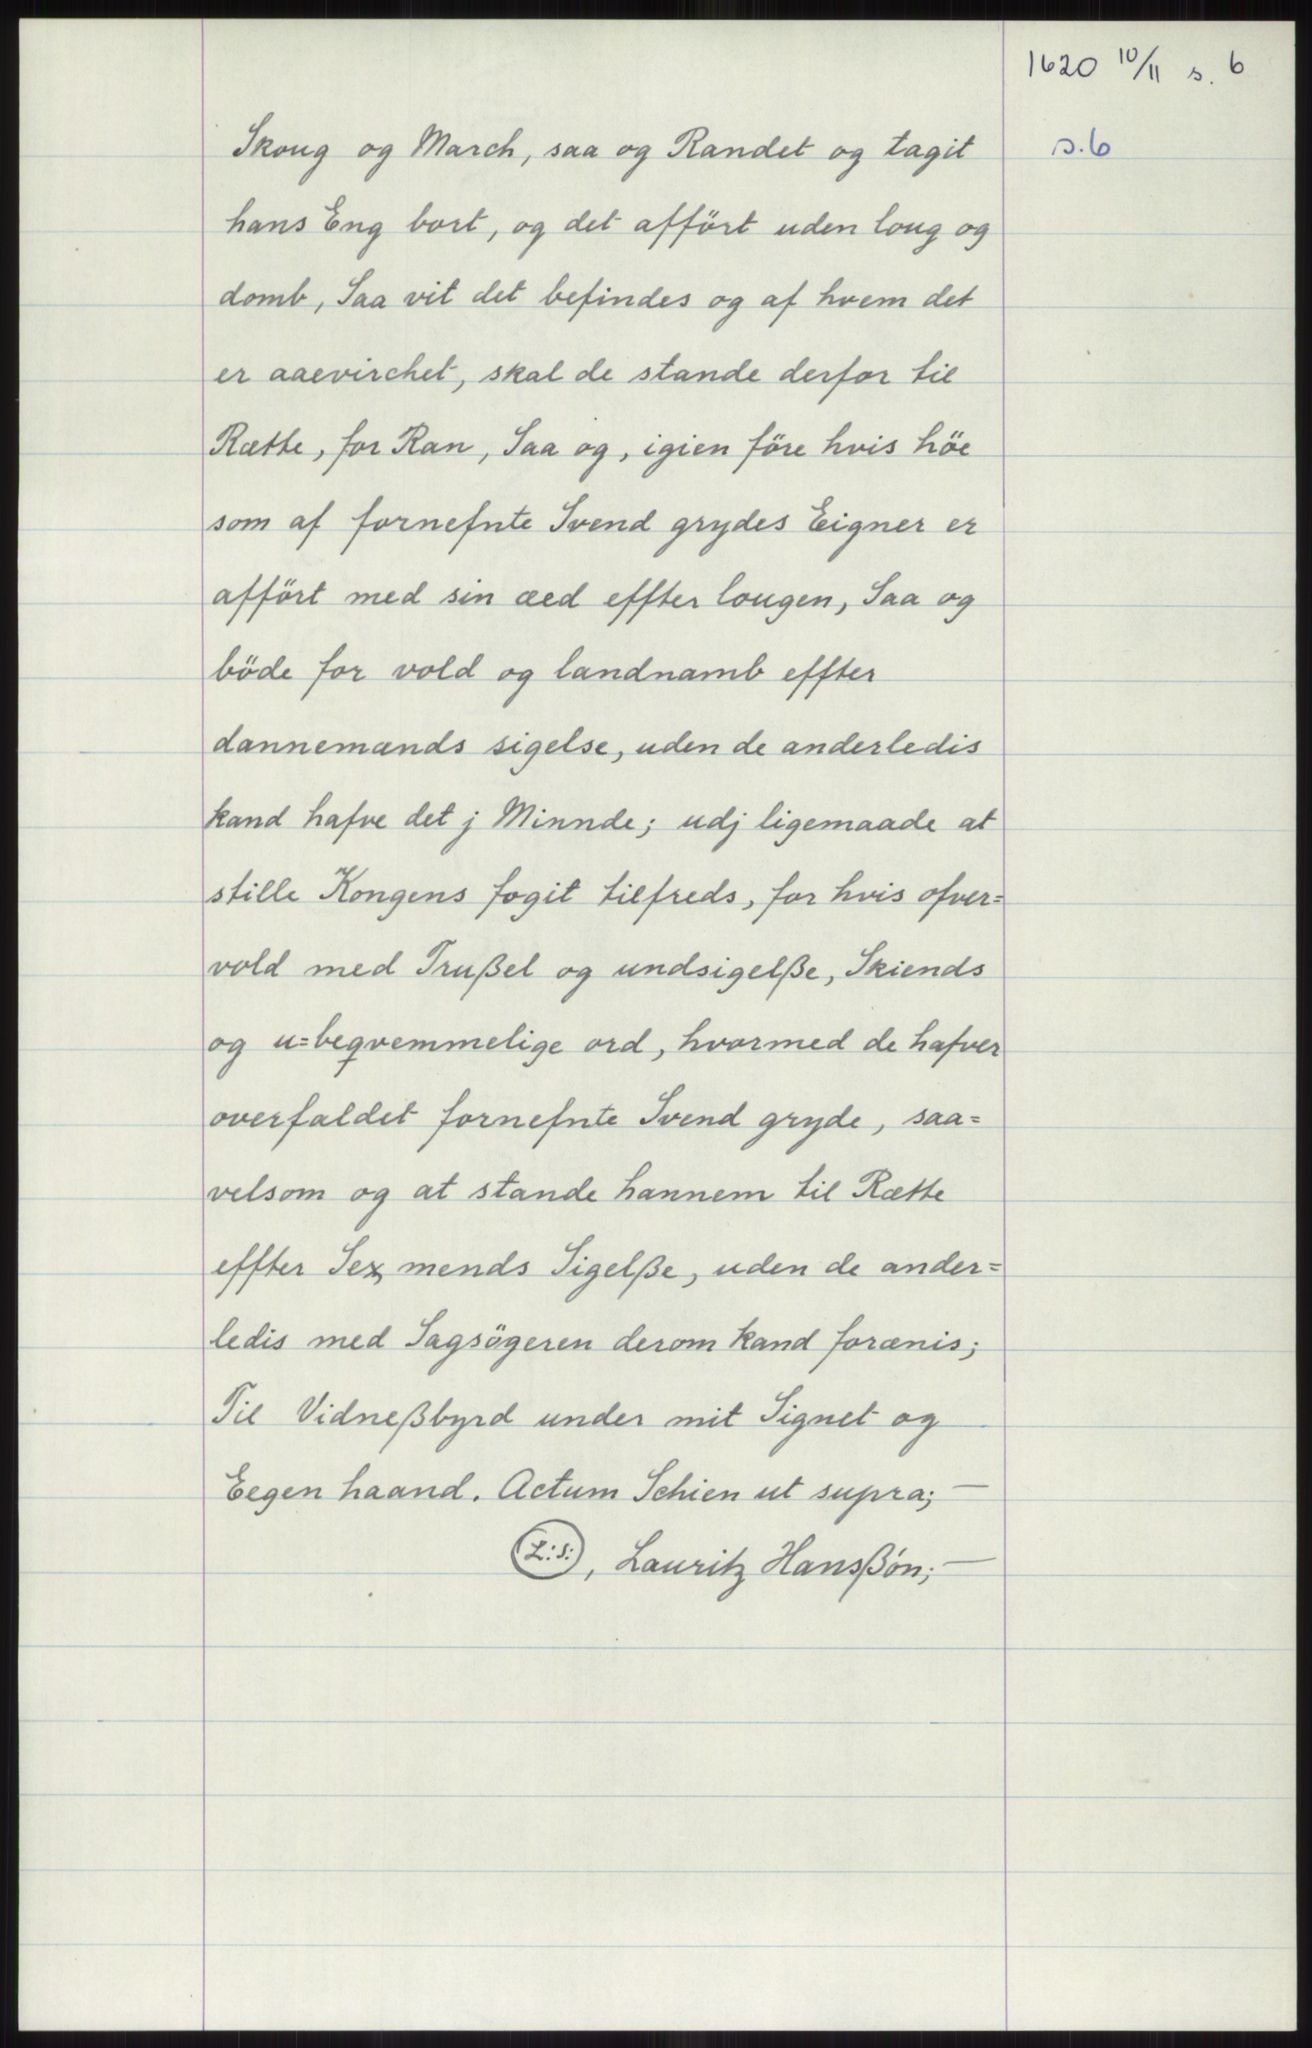 1620 10/11 s. 6
s. 6
Skoug og March, saa og Randet og tagit
hans Eng bort, og det afført uden loug og
domb, Saa vit det befindes og af hvem det
er aaevirchet, skal de stande derfor til
Rætte, for Ran, Saa og, igien före hvis höe
som af fornefnte Svend grydes Eigner er
affört med sin æed effter lougen, Saa og
böde for vold og landnamb effter
dannemands sigelse, uden de anderledis
kand hafve det j Minnde; udj ligemaade at
stille Kongens fogit tilfreds, for hvis ofver=
vold med Trußel og undsigelße, Skiends
og u=beqvemmelige ord, hvormed de hafver
overfaldet fornefnte Svend gryde, saa=
velsom og at stande hannem til Rætte
effter Sex mends Sigelße, uden de ander=
ledis med Sagsögeren derom kand forænis;
Til Vidneßbyrd under mit Signet og
Eegen haand. Actum Schien ut supra; —
L:S:, Lauritz Hansßön; —